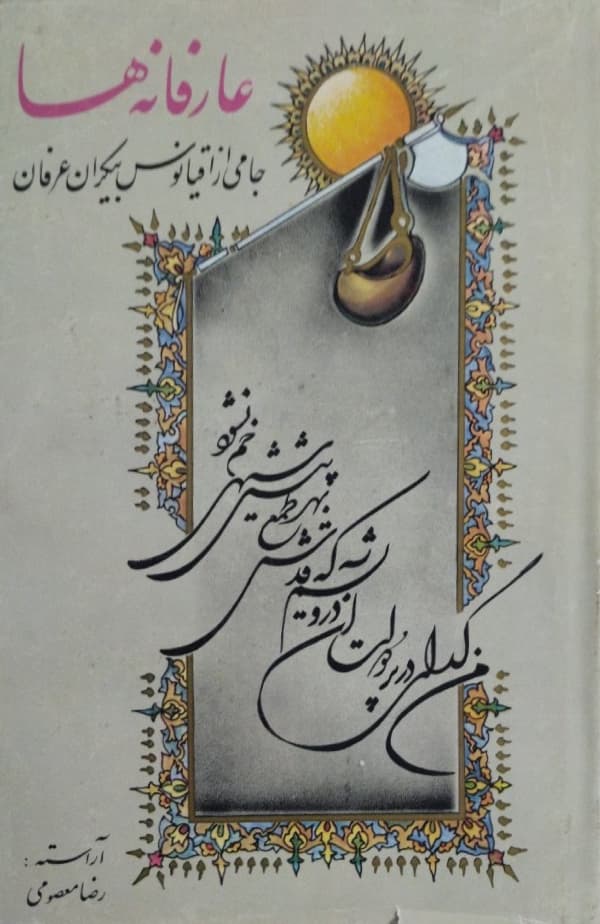 عارفانه ها
جامی از اقیانوس بیکران عرفان
من گدای در پر دولت آن درویشم
که قدش بهر طمع پیش شهی خم نشود
آراسته :
رضا معصومی